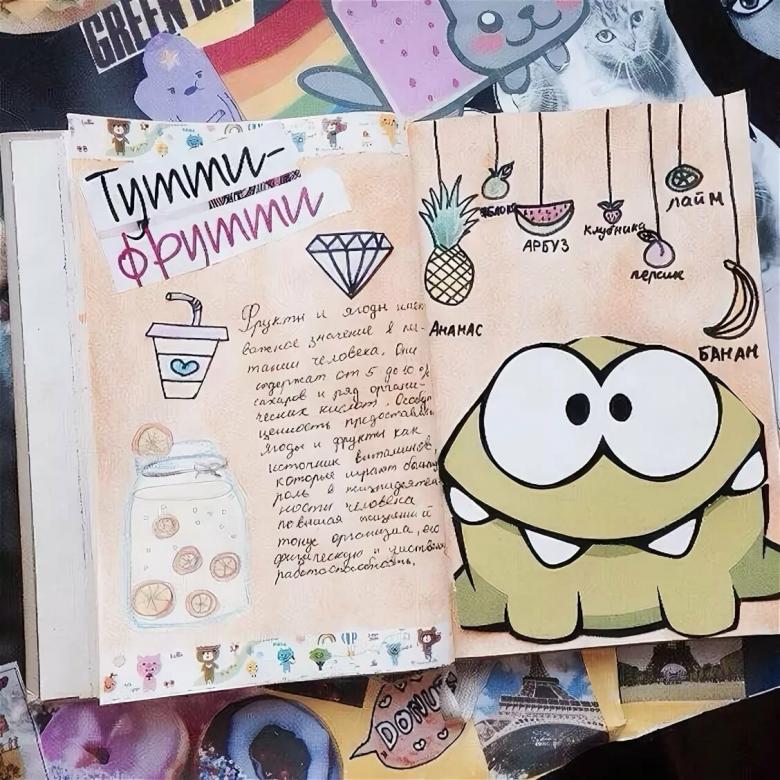 GREEN DAY
Тутти-
фрутти
Фрукты и ягоды имеют
важное значение в пи-
тании человека. Они
содержат от 5 до 10 %
сахаров и ряд органи-
ческих кислот. Особую
ценность представляют
ягоды и фрукты как
источник витаминов,
которые играют большую
роль в жизнедеятель-
ности человека
повышая жизненный
тонус организма, его
физическую и умственную
работоспособность.
ЯБЛОКО
АРБУЗ
клубника
лайм
персик
АНАНАС
БАНАН
DONUT